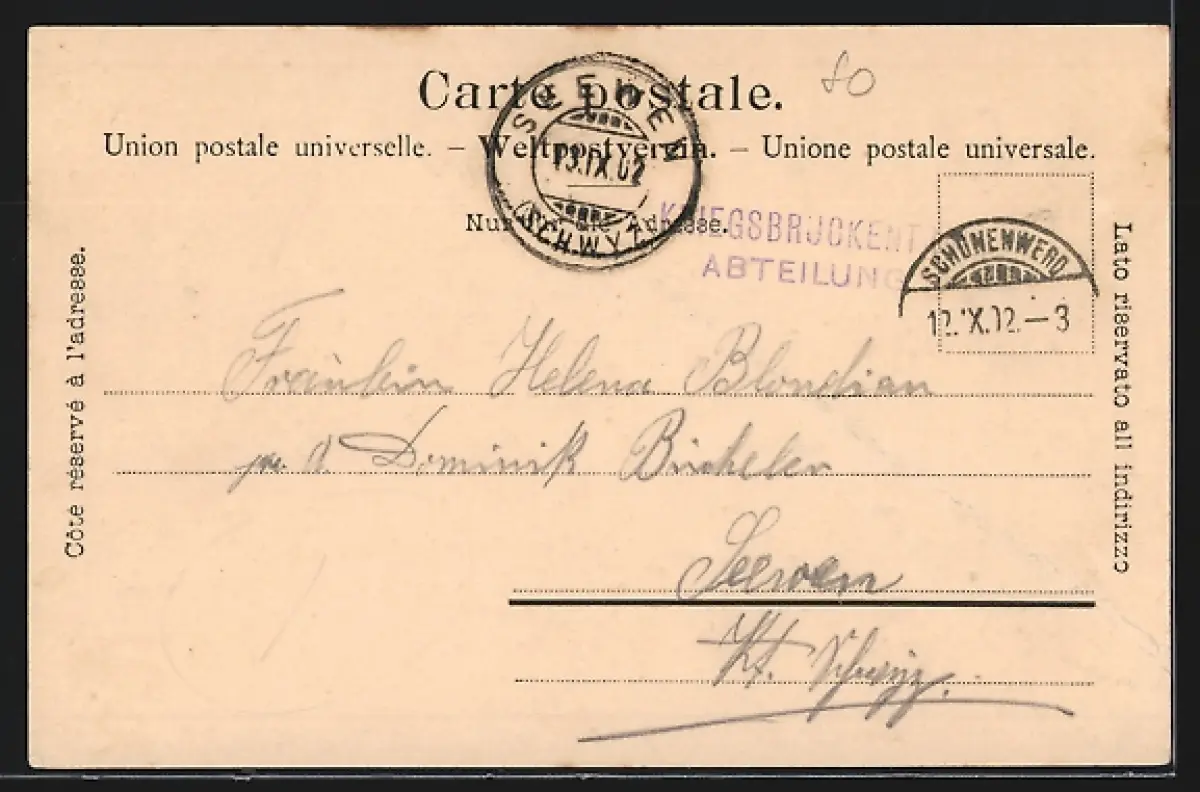 Carte postale.
80
Union postale universelle. – Weltpostverein. – Unione postale universale.
SEEWEN
13.IX.02
(SCHWYZ)
Nur für die Adresse.
KRIEGSBRÜCKENT
ABTEILUNG
SCHÖNENWERD
12.IX.02.–3
Côte réservé à l'adresse.
Lato riservato all indirizzo
Fräulein Helena Blondian
Dominik Büeheler
Seewen
Kt. Schwyz.